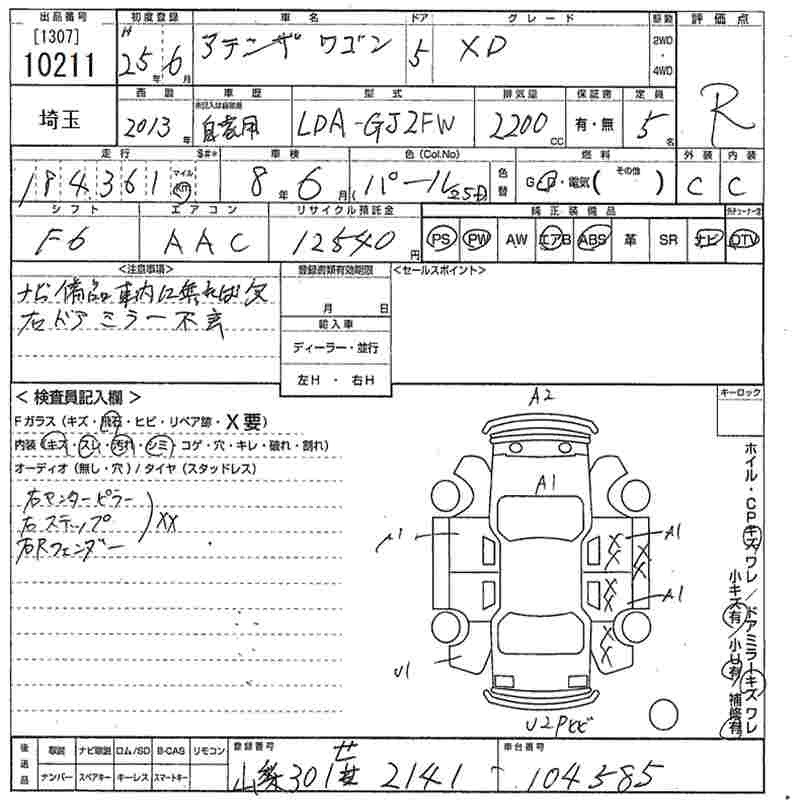 出品番号 初度登録 車名 ドア グレード 駆動 評価点
[1307] 10211 H 25年6月 アテンザ ワゴン 5 XD 2WD・4WD R
西暦 車歴 型式 排気量 保証書 定員
埼玉 2013年 未記入は自家用 自家用 LDA-GJ2FW 2200cc 有・無 5名
走行 $#* 車検 色(Col.No) 色替 燃料 外装 内装
184361 マイル Km 8年6月 (パール ) G・D・電気(その他 ) C C
シフト エアコン リサイクル預託金 純正装備品
F6 AAC 12540円 PS PW AW エアB ABS 革 SR ナビ DTV
<注意事項> 登録書類有効期限 <セールスポイント>
ナビ備品車内に無ければ欠
右ドアミラー不良
月 日
輸入車
ディーラー・並行
左H・右H
<検査員記入欄> キーロック
Fガラス(キズ・飛石・ヒビ・リペア跡・X要)
内装(キズ・スレ・汚れ・シミ・コゲ・穴・キレ・破れ・割れ)
オーディオ(無し・穴)/タイヤ(スタッドレス)
右センターピラー
右ステップ XX
右Rフェンダー
A2
A1
A1
XX
XX
XX
A1
XX
U1
U2Pヒビ
ホイル・CPキズワレ/ドアミラーキズワレ
小キズ有/小U有/補修有
後送品 取説 ナビ取説 ロム/SD B-CAS リモコン 登録番号 車台番号
ナンバー スペアキー キーレス スマートキー 301 せ 2141 104585